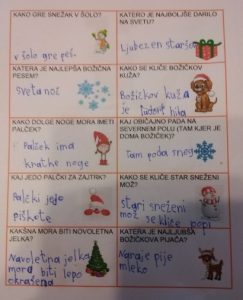 KAKO GRE SNEŽAK V ŠOLO?
v šolo gre peš.
KATERO JE NAJBOLJŠE DARILO
NA SVETU?
Ljubezen staršo
KATERA JE NAJLEPŠA BOŽIČNA
PESEM?
Sveta noč
KAKO SE KLIČE BOŽIČKOV
KUŽA?
Božičkov kuža
je
KAKO DOLGE NOGE MORA IMETI
PALČEK?
Palček ima
kratke noge
KAJ OBIČAJNO PADA NA
SEVERNEM POLU (TAM KJER JE
DOMA BOŽIČEK)?
tam pada sneg
KAJ JEDO PALČKI ZA ZAJTRK?
Palčki jejo
piškote
KAKO SE KLIČE STAR SNEŽENI
MOŽ?
Stari sneženi
mož se kliče
KAKŠNA MORA BITI NOVOLETNA
JELKA?
Novoletna jelka
mora biti lepo
okrašena
KATERA JE NAJLJUBŠA
BOŽIČKOVA PIJAČA?
Najraje pije
mleko